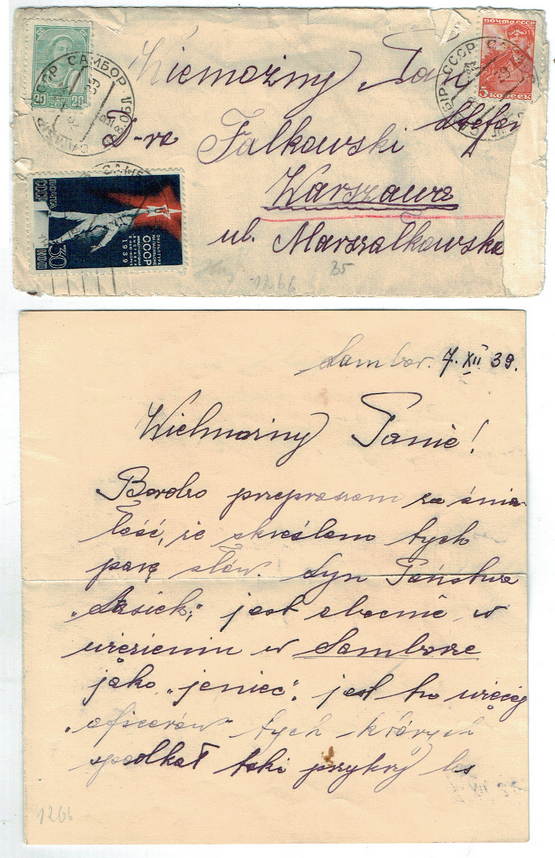 Wielmożny Pan
D-ro Falkowski Stefan
Warszawa
ul. Marszałkowska
1266
35
СССР САМБОР
20 20
СССР
5 КОПЕЕК
ПОЧТА СССР
СССР
1939
30
Sambor. 7.XII 39.
Wielmożny Panie!
Bardzo przepraszam za śmia-
łość, że skreślam tych
parę słów. Syn Państwa
"Lasiek", jest obecnie w
więzieniu w Samborze
jako "jeniec". jest tu więcej
"oficerów" tych których
spotkał taki przykry los
1266